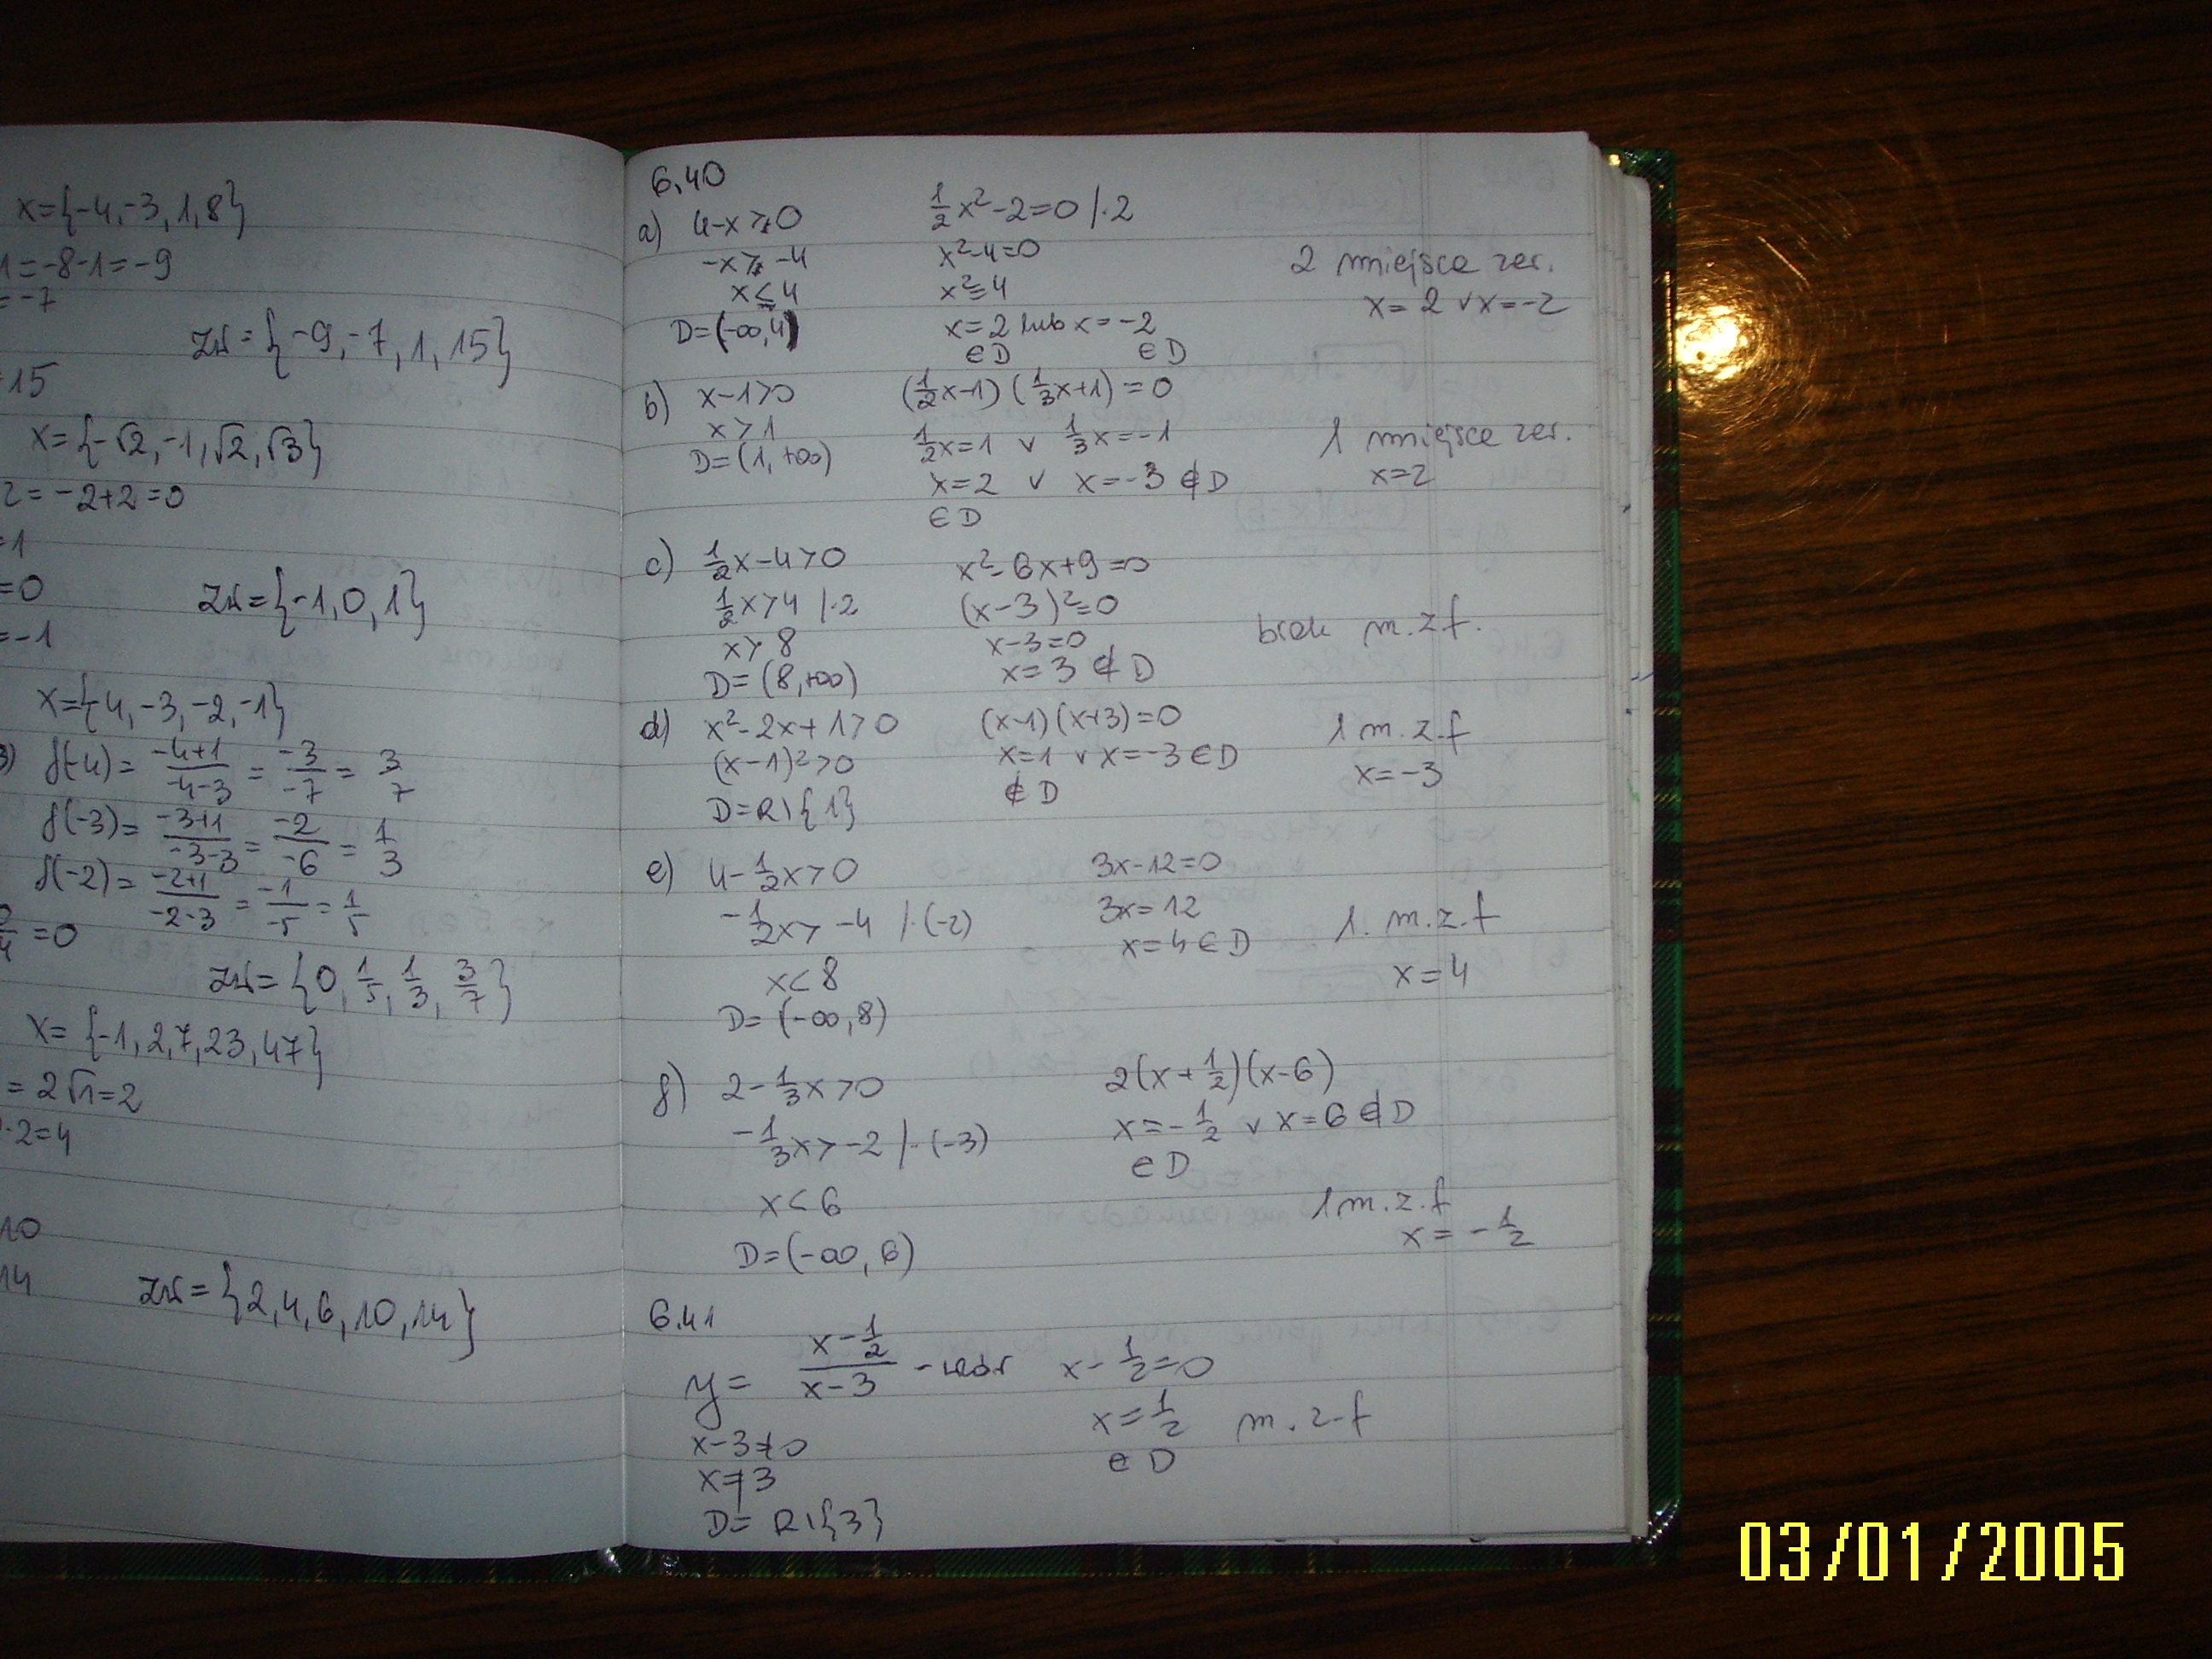 x={-4,-3,1,8}
1=-8-1=-9
=-7
ZW={-9,-7,1,15}
=15
x={-√2,-1,√2,√3}
2=-2+2=0
=1
=0
ZW={-1,0,1}
=-1
x={-4,-3,-2,-1}
f(-4)= \frac{-4+1}{-4-3} = \frac{-3}{-7} = \frac{3}{7}
f(-3)= \frac{-3+1}{-3-3} = \frac{-2}{-6} = \frac{1}{3}
f(-2)= \frac{-2+1}{-2-3} = \frac{-1}{-5} = \frac{1}{5}
=0
ZW={0, \frac{1}{5}, \frac{1}{3}, \frac{3}{7}}
x={-1,2,7,23,47}
=2√1=2
·2=4
10
14
ZW={2,4,6,10,14}
6.40
a) 4-x⩾0 \frac{1}{2}x²-2=0 /·2
-x⩾-4 x²-4=0 2 miejsca zer.
x≤4 x²=4 x=2 v x=-2
D=(-∞,4⟩ x=2 lub x=-2
∈D ∈D
b) x-1>0 (\frac{1}{2}x-1)(\frac{1}{3}x+1)=0
x>1 \frac{1}{2}x=1 v \frac{1}{3}x=-1 1 miejsce zer.
D=(1,+∞) x=2 v x=-3 ∉D x=2
∈D
c) \frac{1}{2}x-4>0 x²-6x+9=0
\frac{1}{2}x>4 /·2 (x-3)²=0 brak m.z.f.
x>8 x-3=0
D=(8,+∞) x=3 ∉D
d) x²-2x+1>0 (x-1)(x+3)=0 1 m.z.f
(x-1)²>0 x=1 v x=-3 ∈D x=-3
D=R\{1} ∉D
e) 4-\frac{1}{2}x>0 3x-12=0
-\frac{1}{2}x>-4 /·(-2) 3x=12 1. m.z.f
x<8 x=4 ∈D x=4
D=(-∞,8)
f) 2-\frac{1}{3}x>0 2(x+\frac{1}{2})(x-6)
-\frac{1}{3}x>-2 /·(-3) x=-\frac{1}{2} v x=6 ∉D
∈D
x<6 1 m.z.f
D=(-∞,6) x=-\frac{1}{2}
6.41
y= \frac{x-\frac{1}{2}}{x-3} - wzór x-\frac{1}{2}=0
x-3≠0 x=\frac{1}{2} m.z.f
x≠3 ∈D
D=R\{3}
03/01/2005